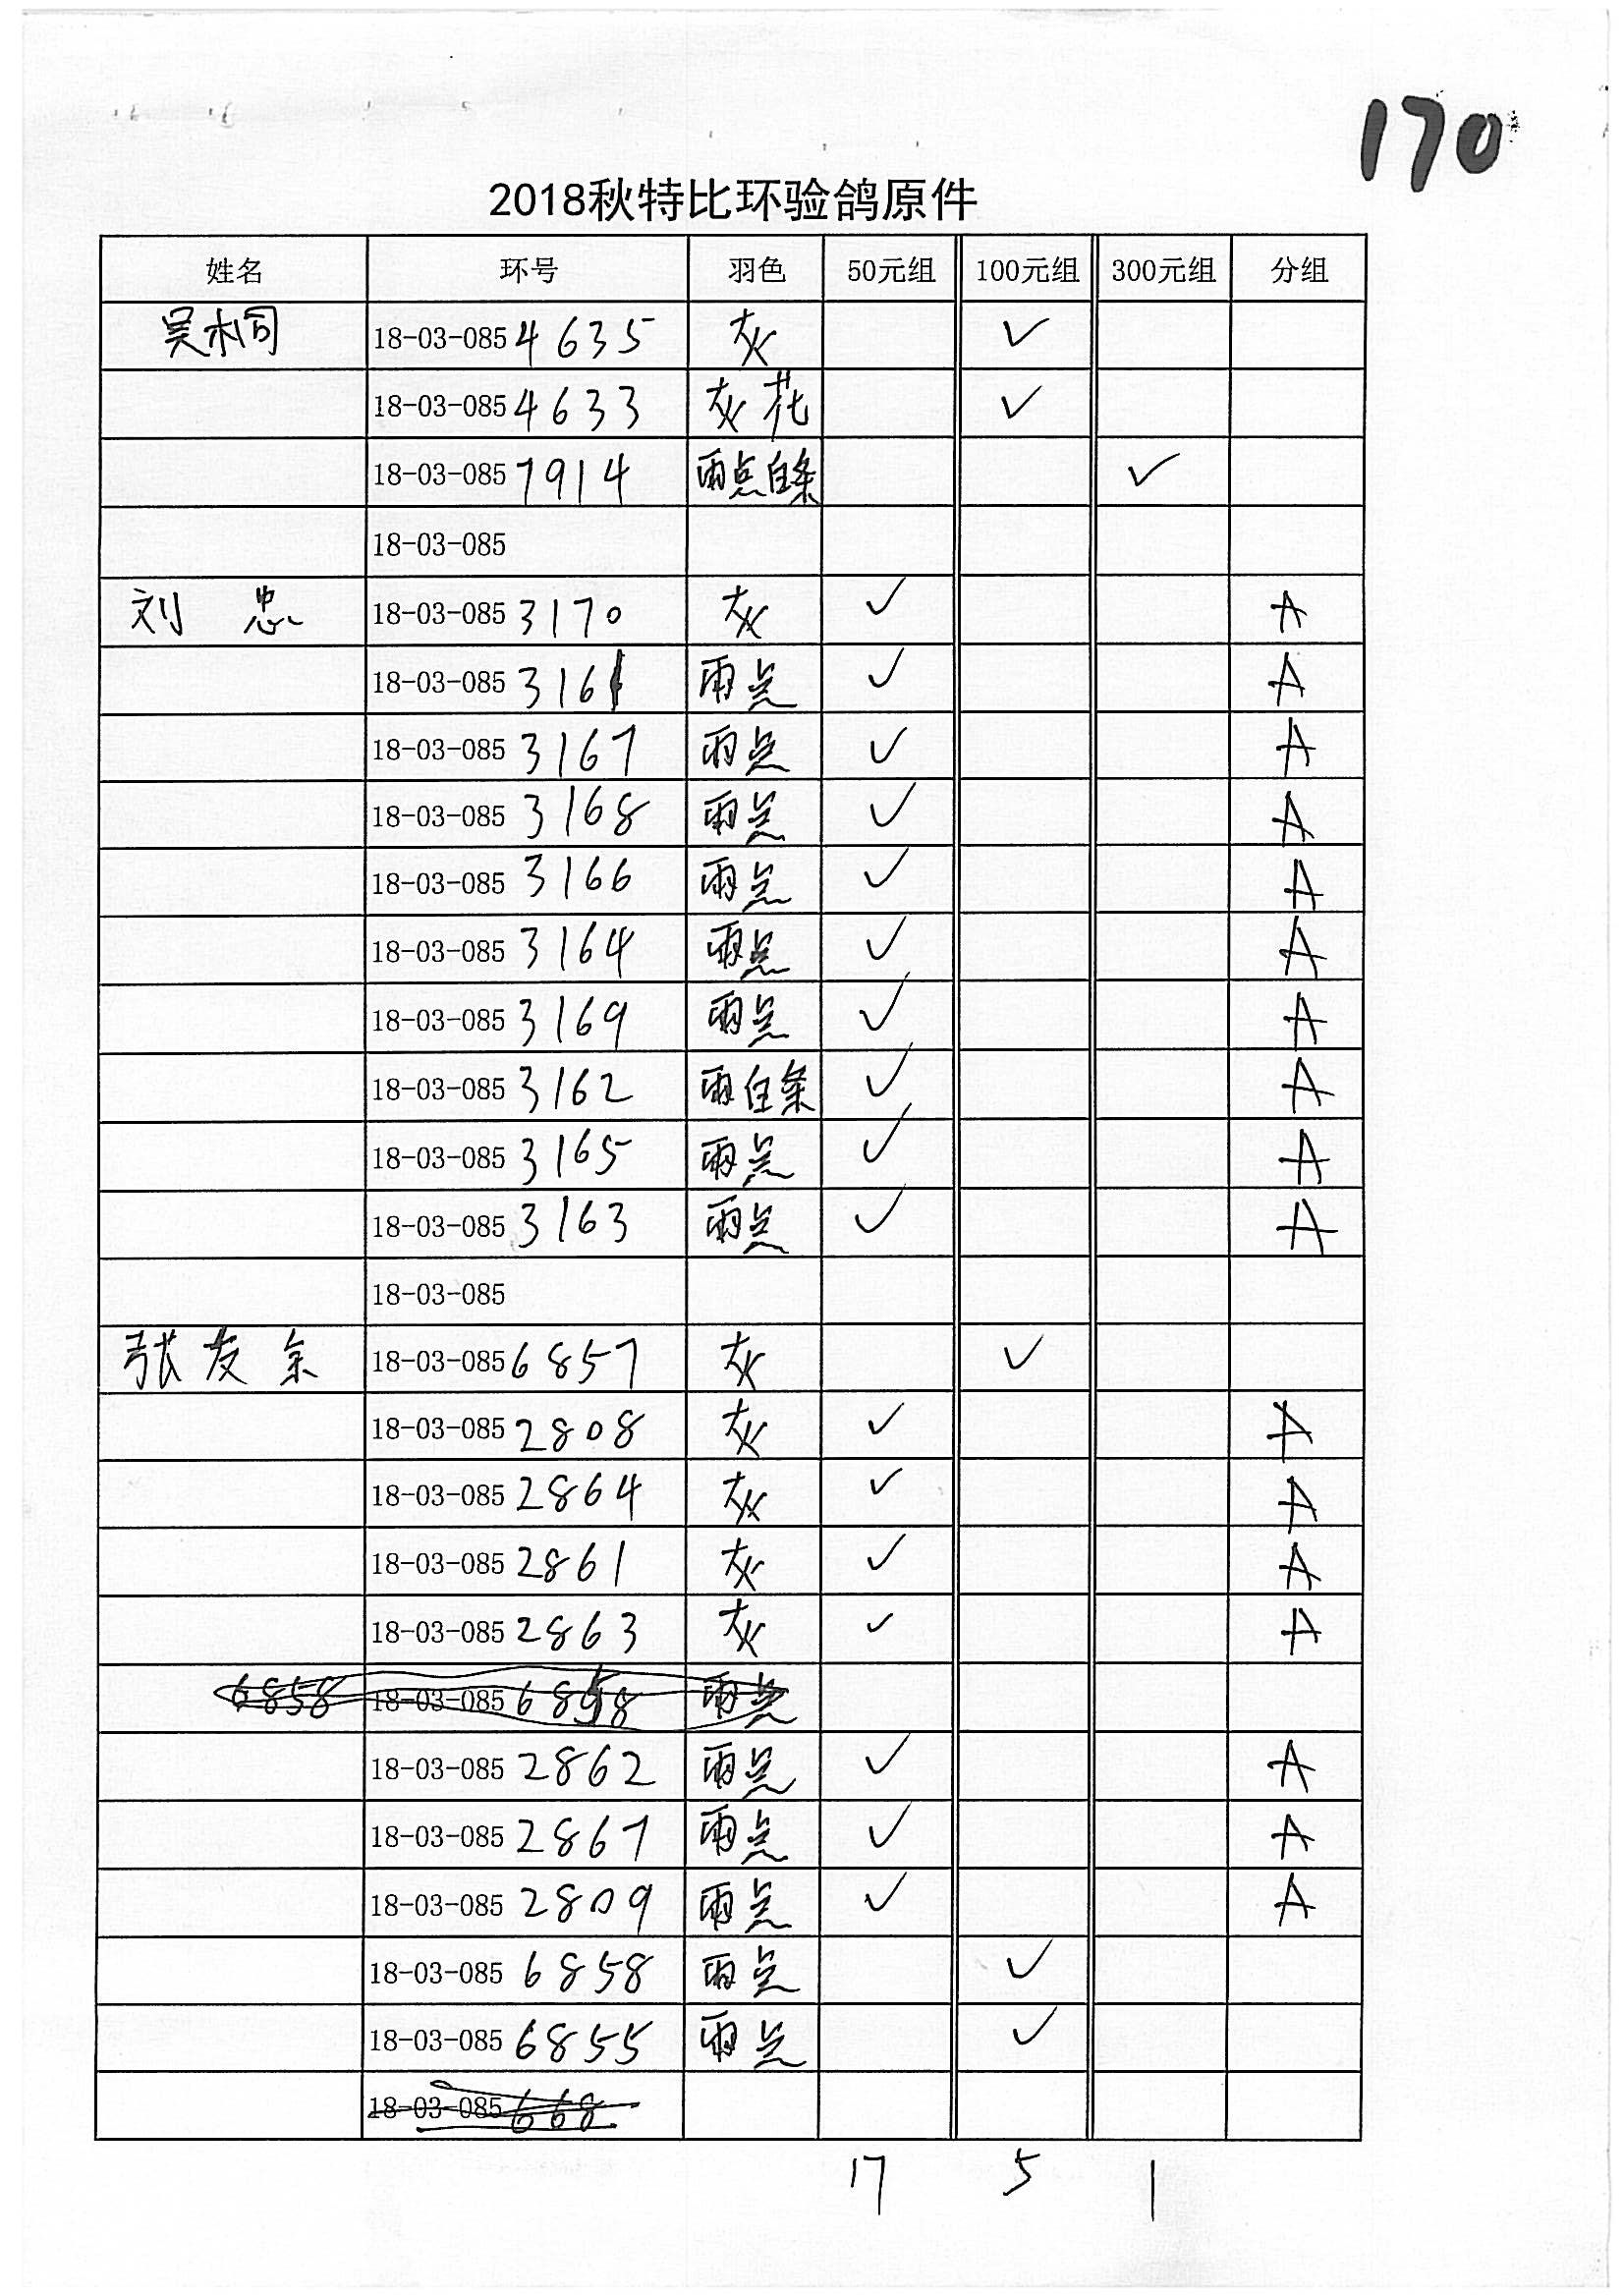 170
2018秋特比环验鸽原件
姓名 环号 羽色 50元组 100元组 300元组 分组
吴桐 18-03-085 4635 灰 ✓
18-03-085 4633 灰花 ✓
18-03-085 7914 雨点白条 ✓
18-03-085
刘忠 18-03-085 3170 灰 ✓ A
18-03-085 3161 雨点 ✓ A
18-03-085 3167 雨点 ✓ A
18-03-085 3168 雨点 ✓ A
18-03-085 3166 雨点 ✓ A
18-03-085 3164 雨点 ✓ A
18-03-085 3169 雨点 ✓ A
18-03-085 3162 雨白条 ✓ A
18-03-085 3165 雨点 ✓ A
18-03-085 3163 雨点 ✓ A
18-03-085
张友余 18-03-085 6857 灰 ✓
18-03-085 2808 灰 ✓ A
18-03-085 2864 灰 ✓ A
18-03-085 2861 灰 ✓ A
18-03-085 2863 灰 ✓ A
6858 18-03-085 6858 雨点
18-03-085 2862 雨点 ✓ A
18-03-085 2867 雨点 ✓ A
18-03-085 2809 雨点 ✓ A
18-03-085 6858 雨点 ✓
18-03-085 6855 雨点 ✓
18-03-085 668
17 5 1